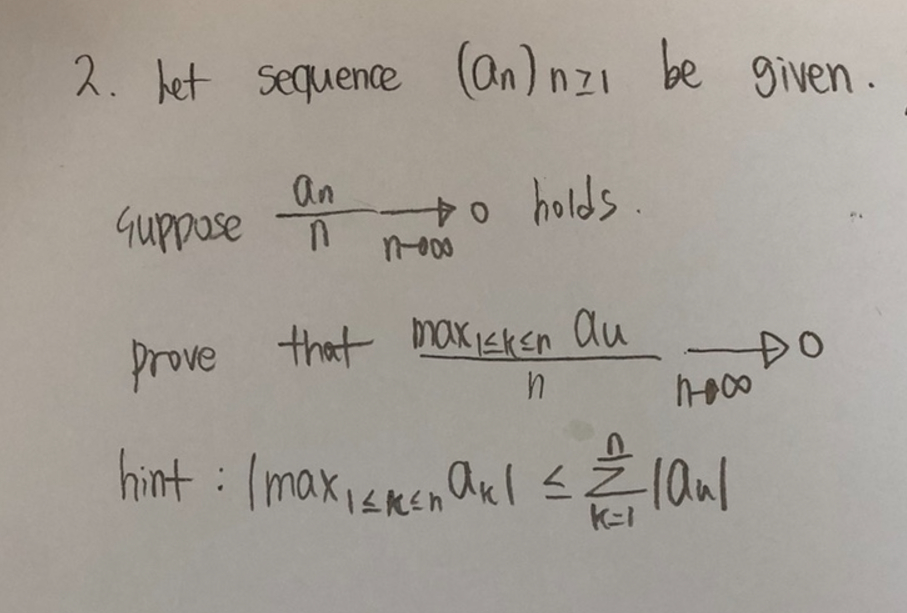 2. Let sequence (an) n≥1 be given.
Suppose an/n → 0 holds. n→∞
prove that max 1≤k≤n au / n → 0 n→∞
hint : |max 1≤k≤n ak| ≤ n Σ k=1 |au|